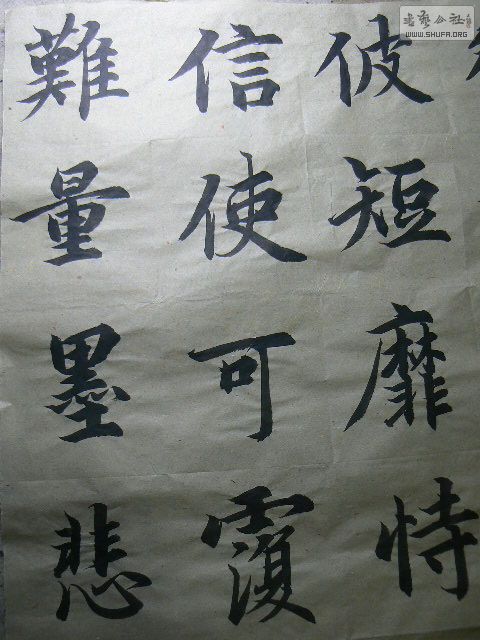 彼短靡恃
信使可覆
難量墨悲
書艺公社
WWW.SHUFA.ORG